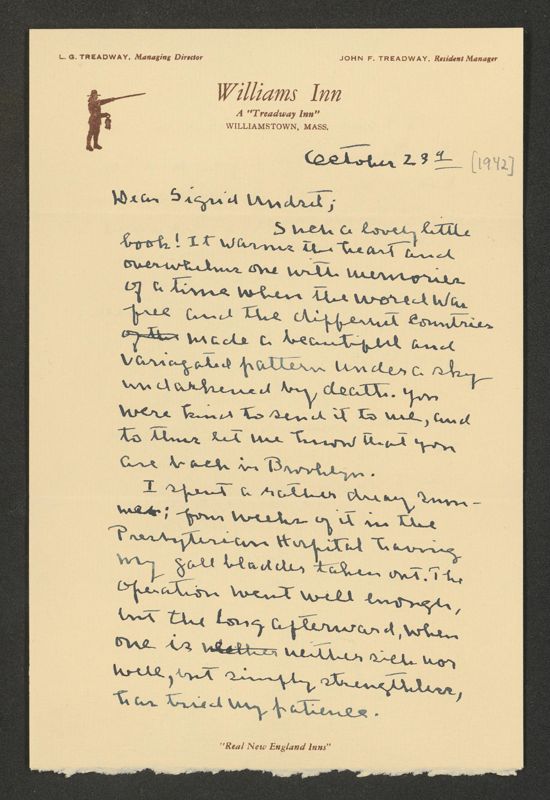 L. G. TREADWAY, Managing Director
JOHN F. TREADWAY, Resident Manager
Williams Inn
A "Treadway Inn"
WILLIAMSTOWN, MASS.
October 23d [1942]
Dear Sigrid Undset;
Such a lovely little
book! It warms the heart and
overwhelms one with memories
of a time when the world was
free and the different countries
of the made a beautiful and
variagated pattern under a sky
undarkened by death. You
were kind to send it to me, and
to thus let me know that you
are back in Brooklyn.
I spent a rather dreary sum-
mer; four weeks of it in the
Presbyterian Hospital having
my gall bladder taken out. The
operation went well enough,
but the long afterward, when
one is neither sick nor
well, but simply strengthless,
has tried my patience.
"Real New England Inns"